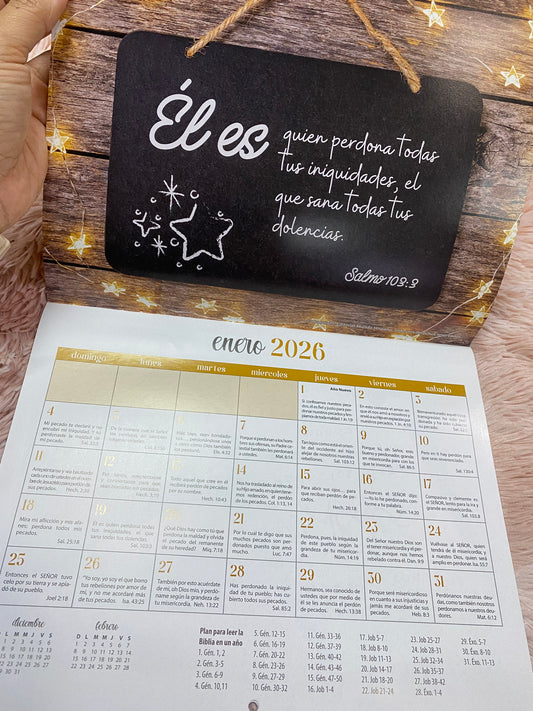 Él es quien perdona todas
tus iniquidades, el
que sana todas tus
dolencias.
Salmo 103:3
enero 2026
domingo lunes martes miércoles jueves viernes sábado
1 Año Nuevo
Si confesamos nuestros pecados,
él es fiel y justo para perdonar
nuestros pecados y limpiarnos
de toda maldad. 1 Jn. 1:9
2
En esto consiste el amor: en
que él nos amó a nosotros y
envió a su Hijo en expiación por
nuestros pecados.
3
Bienaventurado aquel cuya
transgresión ha sido
4
Mi pecado te declaré y no
encubrí mi iniquidad... Y tú
perdonaste la maldad de
mi pecado. Sal. 32:5
5
6
perdonándoos unos
a otros como Dios también
os perdonó Ef. 4:32
7
Porque si perdonan a los hombres
sus ofensas, su Padre celestial
los perdonará a
ustedes. Mat. 6:14
8
Tan lejos como está el oriente
del occidente así hizo
alejar de nosotros nuestras
rebeliones. Sal. 103:12
9
Porque tú, oh Señor, eres
bueno y perdonador, grande
en misericordia para los que
te invocan. Sal. 86:5
10
Pero en ti hay perdón para
que seas reverenciado.
Sal. 130:4
11
Arrepiéntanse y sea bautizado
cada uno de ustedes en el nombre
de Jesucristo para perdón de
sus pecados. Hech. 2:38
12
Hech. 3:19
13
Todo aquel que cree en él
recibirá perdón de pecados
por su nombre.
Hech. 10:43
14
Nos ha trasladado al reino de
su Hijo amado, en quien tenemos
redención, el perdón
de los pecados. Col. 1:13, 14
15
Para abrir sus ojos... para
que reciban perdón de pecados.
Hech. 26:18
16
Entonces el SEÑOR dijo:
—Yo lo he perdonado, conforme
a tu palabra.
Núm. 14:20
17
Compasivo y clemente es
el SEÑOR, lento para la ira y
grande en misericordia.
Sal. 103:8
18
Mira mi aflicción y mis afanes;
perdona todos mis
pecados.
Sal. 25:18
19
Él es quien perdona todas
tus iniquidades, el que
sana todas tus dolencias.
Sal. 103:3
20
¿Qué Dios hay como tú que
perdona la maldad y olvida
el pecado del remanente
de su heredad? Miq. 7:18
21
Por lo cual te digo que sus
muchos pecados son perdonados
puesto que amó
mucho. Luc. 7:47
22
Perdona, pues, la iniquidad
de este pueblo según la
grandeza de tu misericordia.
Núm. 14:19
23
Del Señor nuestro Dios son
el tener misericordia y el perdonar,
aunque nos hemos
rebelado contra él. Dan. 9:9
24
Vuélvase al SEÑOR, quien
tendrá de él misericordia, y
a nuestro Dios, quien será
amplio en perdonar. Isa. 55:7
25
Entonces el SEÑOR tuvo
celo por su tierra y se apiadó
de su pueblo.
Joel 2:18
26
"Yo soy, yo soy el que borro
tus rebeliones por amor de
mí, y no me acordaré más
de tus pecados. Isa. 43:25
27
También por esto acuérdate
de mí, oh Dios mío, y perdóname
según la grandeza de
tu misericordia. Neh. 13:22
28
Has perdonado la iniquidad
de tu pueblo; has cubierto
todos sus pecados.
Sal. 85:2
29
Hermanos, sea conocido de
ustedes que por medio de
él se les anuncia el perdón
de pecados. Hech. 13:38
30
Porque seré misericordioso
en cuanto a sus injusticias y
jamás me acordaré de sus
pecados. Heb. 8:12
31
Perdónanos nuestras deudas,
como también nosotros
perdonamos a nuestros deudores.
Mat. 6:12
diciembre
D L M M J V S
1 2 3 4 5 6
febrero
D L M M J V S
1 2 3 4 5 6 7
8 9 10 11 12 13 14
15 16 17 18 19 20 21
22 23 24 25 26 27 28
Plan para leer la
Biblia en un año
1. Gén. 1, 2
2. Gén. 3-5
3. Gén. 6-9
4. Gén. 10, 11
5. Gén. 12-15
6. Gén. 16-19
7. Gén. 20-22
8. Gén. 23-26
9. Gén. 27-29
10. Gén. 30-32
11. Gén. 33-36
12. Gén. 37-39
13. Gén. 40-42
14. Gén. 43-46
15. Gén. 47-50
16. Job 1-4
17. Job 5-7
18. Job 8-10
19. Job 11-13
20. Job 14-17
21. Job 18-20
22. Job 21-24
23. Job 25-27
24. Job 28-31
25. Job 32-34
26. Job 35-37
27. Job 38-42
28. Éxo. 1-4
29. Éxo. 5-7
30. Éxo. 8-10
31. Éxo. 11-13